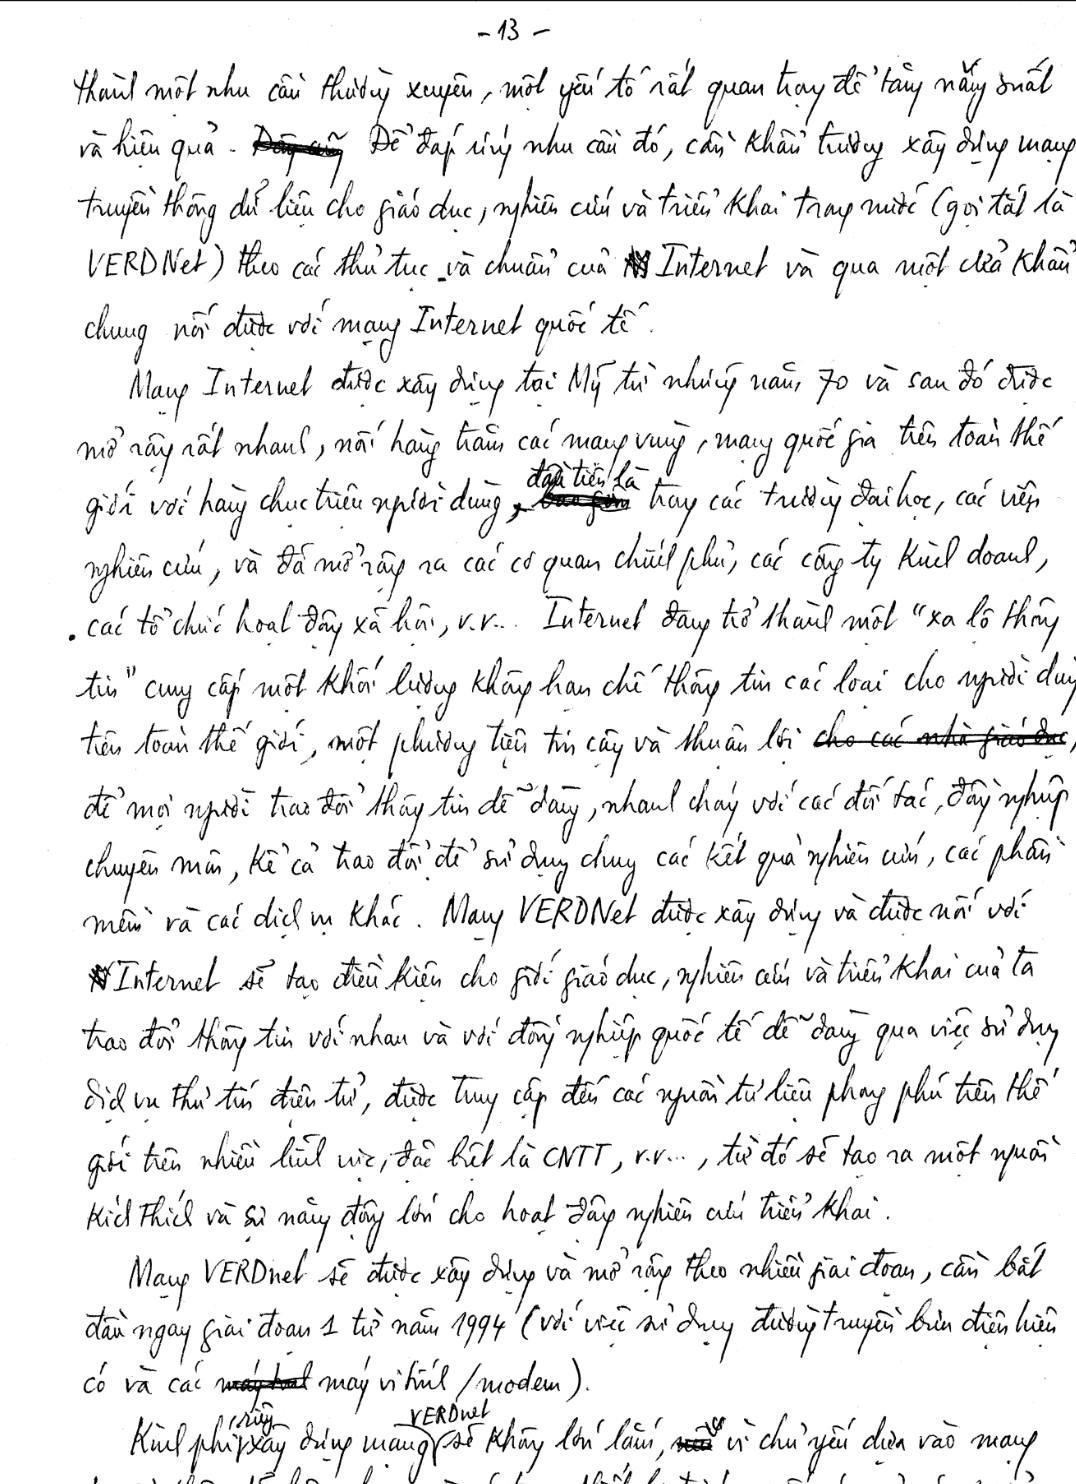 - 13 -
thành một nhu cầu thường xuyên, một yếu tố rất quan trọng để tăng năng suất
và hiệu quả. Để đáp ứng nhu cầu đó, cần khẩn trương xây dựng mạng
truyền thông dữ liệu cho giáo dục, nghiên cứu và triển khai trong nước (gọi tắt là
VERDNet) theo các thủ tục và chuẩn của Internet và qua một cửa khẩu
chung nối được với mạng Internet quốc tế.
Mạng Internet được xây dựng tại Mỹ từ những năm 70 và sau đó được
mở rộng rất nhanh, nối hàng trăm các mạng vùng, mạng quốc gia trên toàn thế
giới với hàng chục triệu người dùng, đầu tiên là trong các trường đại học, các viện
nghiên cứu, và đã mở rộng ra các cơ quan chính phủ, các công ty kinh doanh,
các tổ chức hoạt động xã hội, v.v... Internet đang trở thành một "xa lộ thông
tin" cung cấp một khối lượng không hạn chế thông tin các loại cho người dùng
trên toàn thế giới, một phương tiện tin cậy và thuận lợi cho các nhà giáo dục,
để mọi người trao đổi thông tin dễ dàng, nhanh chóng với các đối tác, đồng nghiệp
chuyên môn, kể cả trao đổi để sử dụng chung các kết quả nghiên cứu, các phần
mềm và các dịch vụ khác. Mạng VERDNet được xây dựng và được nối với
Internet sẽ tạo điều kiện cho giới giáo dục, nghiên cứu và triển khai của ta
trao đổi thông tin với nhau và với đồng nghiệp quốc tế dễ dàng qua việc sử dụng
dịch vụ thư tín điện tử, được truy cập đến các nguồn tư liệu phong phú trên thế
giới trên nhiều lĩnh vực, đặc biệt là CNTT, v.v..., từ đó sẽ tạo ra một nguồn
kích thích và sự năng động lớn cho hoạt động nghiên cứu triển khai.
Mạng VERDnet sẽ được xây dựng và mở rộng theo nhiều giai đoạn, cần bắt
đầu ngay giai đoạn 1 từ năm 1994 (với việc sử dụng đường truyền bưu điện hiện
có và các máy vi tính/modem).
Kinh phí riêng xây dựng mạng VERDnet sẽ không lớn lắm, vì chủ yếu dựa vào mạng